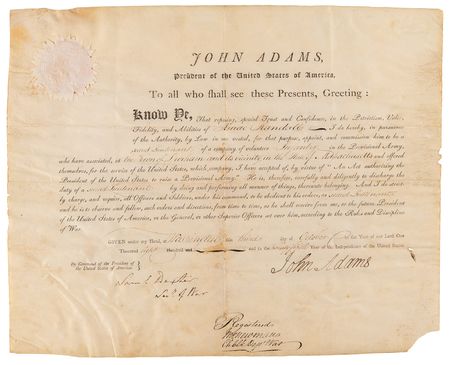 JOHN ADAMS,
President of the United States of America,
To all who shall see these Presents, Greeting:
Know Ye, That reposing special Trust and Confidence, in the Patriotism, Valor,
Fidelity, and Abilities of Isaac I do hereby, in pursuance
of the Authority, by Law in me vested, for that purpose, appoint, and commission him to be a
second Lieutenant of a company of volunteer Infantry in the Provisional Army,
who have associated, at and its vicinity in the State of Massachusetts and offered
themselves, for the service of the United States, which company, I have accepted of, by virtue of "An Act authorising the
President of the United States to raise a Provisional Army." He is, therefore, carefully and diligently to discharge the
duty of a second Lieutenant by doing and performing all manner of things, thereunto belonging. And I do strict-
ly charge, and require, all Officers and Soldiers, under his command, to be obedient to his orders, as second Lieutenant
and he is to observe and follow, such orders and directions, from time to time, as he shall receive from me, or the future President
of the United States of America, or the General, or other Superior Officers set over him, according to the Rules and Discipline
of War.
GIVEN under my Hand, at this day of October in the Year of our Lord One
Thousand and and in the Year of the Independence of the United States
By Command of the President of
the United States of America.
John Adams
Sam L Dexter
Sec. of War
Registered
Chf Clk Dept War